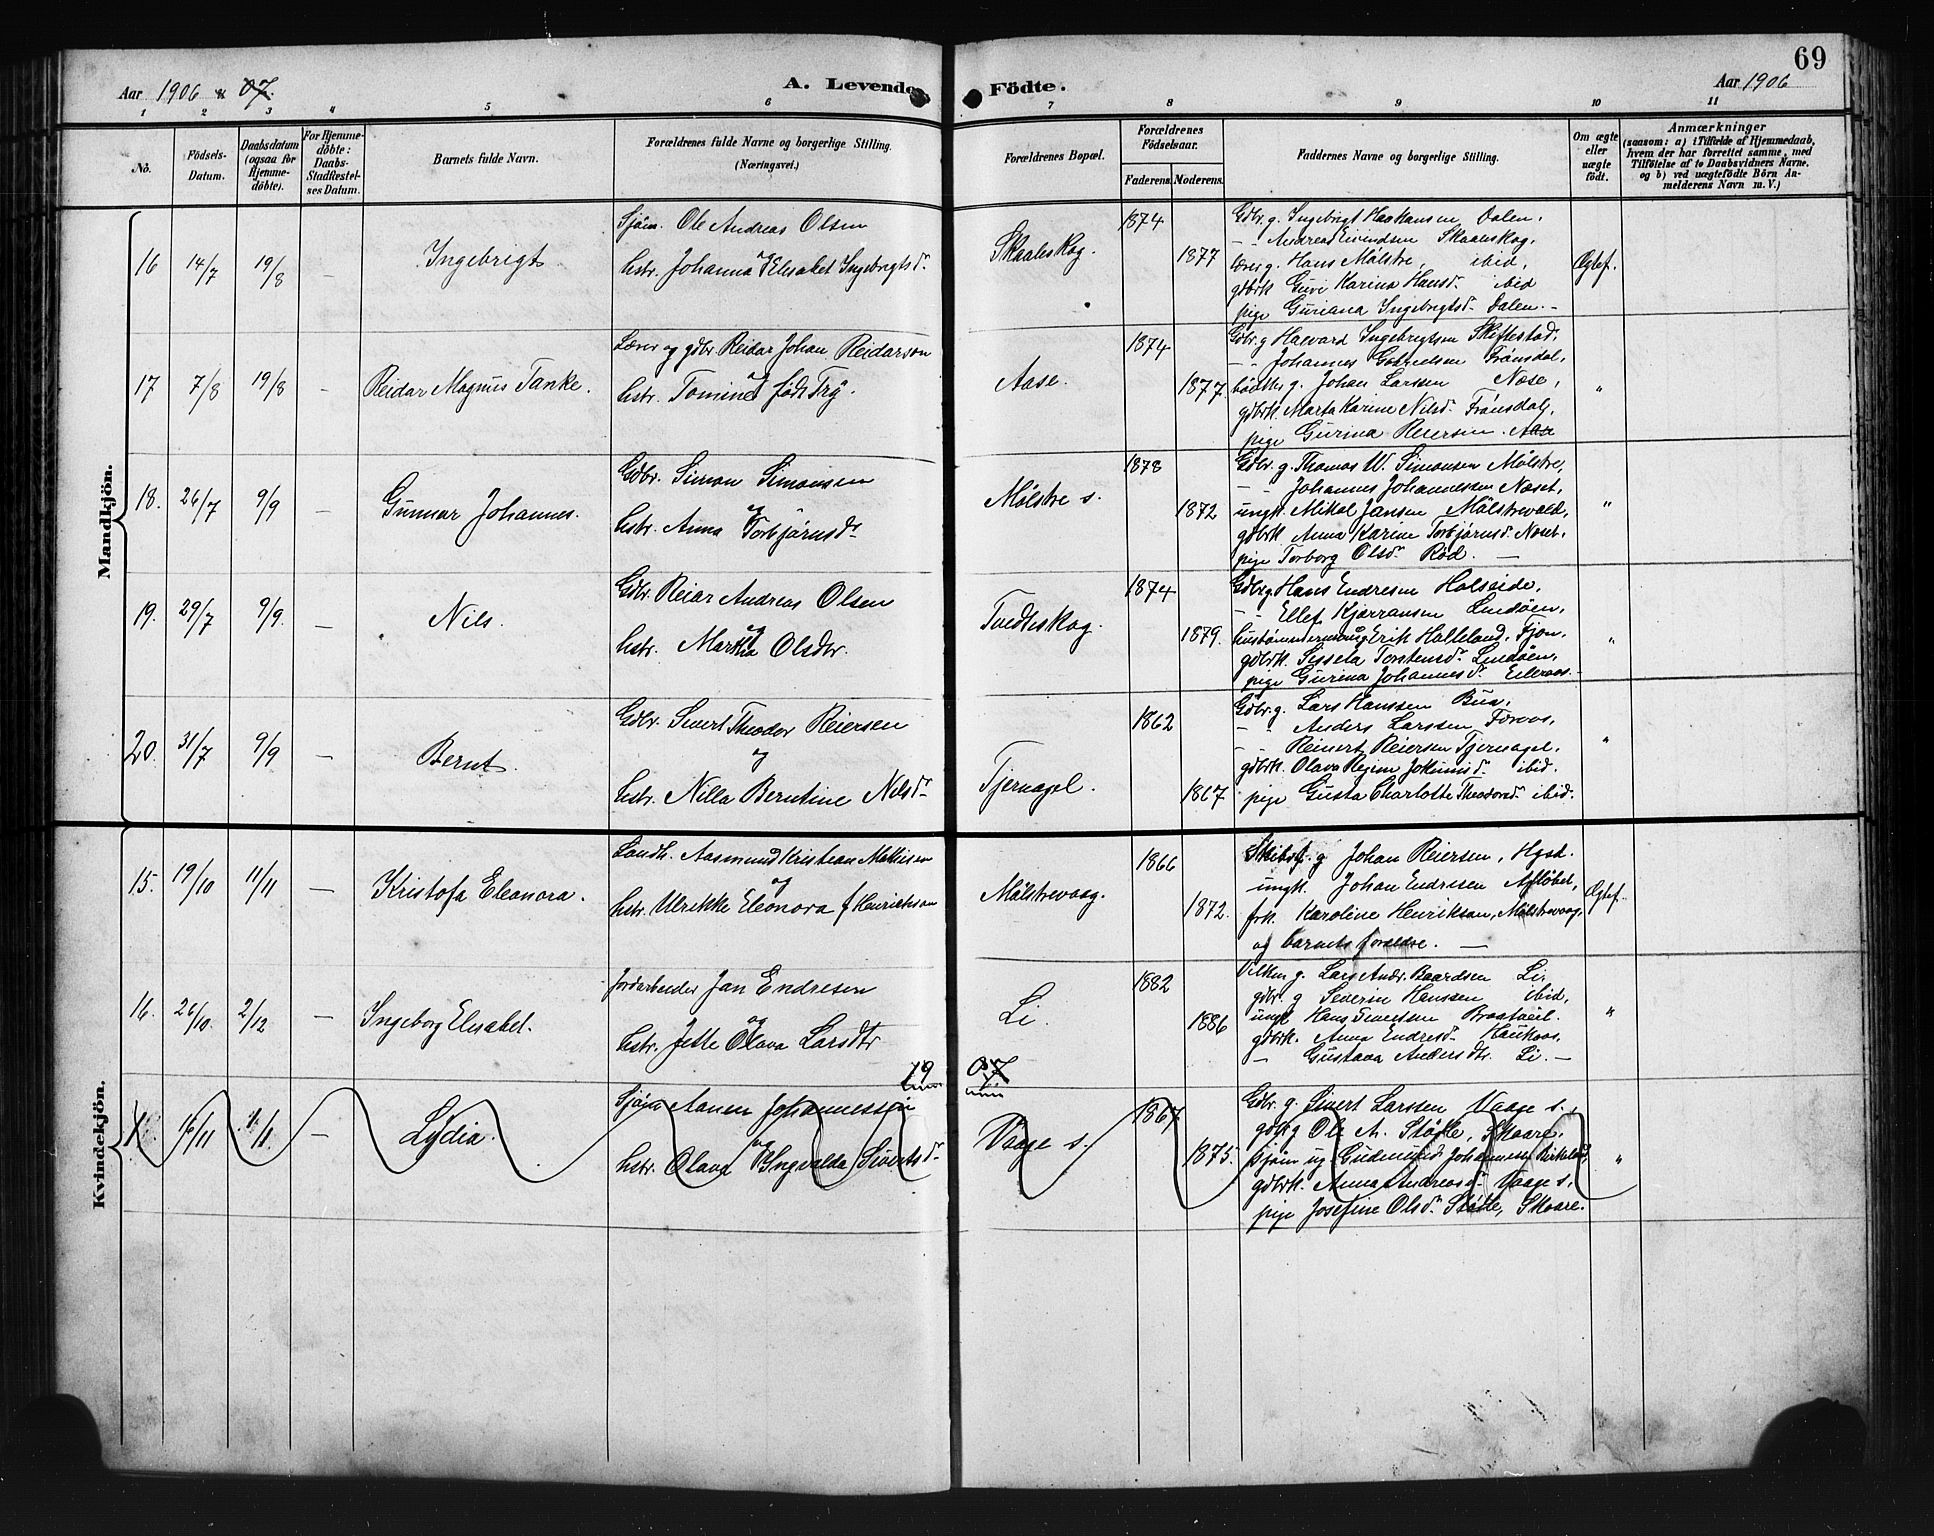 69
Aar 1906 & 07. A. Levende Födte. Aar 1906
1 2 3 4 5 6 7 8 9 10 11
No. Födsels-Datum. Daabsdatum (ogsaa for Hjemmedöbte). For Hjemmedöbte: Daabs-Stadfæstelses Datum. Barnets fulde Navn. Forældrenes fulde Navne og borgerlige Stilling. (Næringsvei.) Forældrenes Bopæl. Forældrenes Födselsaar. Faderens. Moderens. Faddernes Navne og borgerlige Stilling. Om ægte eller uægte födt. Anmærkninger (saasom: a) i Tilfælde af Hjemmedaab, hvem der har forrettet samme, med Tilföielse af to Daabsvidners Navne. og b) ved uægtefödte Börn Anmelderens Navn m. V.)
Mandkjön.
16 14/7 19/8 — Ingebrigt.
Sjöm. Ole Andreas Olsen
og
hstr. Johanna Elisabet Ingebrigtsd.
Skaaleskog. 1874 1877
Gdbr. g. Ingebrigt Haakansen Dalen,
- - Andreas Eivindsen Skaaleskog,
lærer g. Hans Mölstre, ibid,
gdbrk Guri Karina Hansd. ibid
pige Guriana Ingebrigtsd. Dalen. -
Ægtef.
17 7/8 19/8 - Reidar Magnus Tanke.
Lærer og gdbr. Reidar Johan Reidarson
og
hstr. Tomine födt Try.
Aase. 1874 1877.
Gdbr. g Haavard Ingebrigtsen Skiftestad,
- - Johannes Gabrielsen Frönsdal,
g. Johan Larssen Næse,
gdbrk. Marta Karine Nilsd. Frönsdal,
pige Gurina Reiersen. Aase
"
18. 26/7 9/9 — Gunnar Johannes.
Gdbr. Simon Simonsen
og
hstr. Anna Torbjörnsd.
Mölstre s. 1878 1872
Gdbr. g. Thomas W. Simonsen Mölstre,
- - Johannes Johannessen Næset,
ungk. Mikal Jansen Mölstrevold,
gdbrk Anna Karine Torbjörnsd. Næset,
pige Torborg Olsd. Röd. —
"
19. 29/7 9/9. — Nils.
Gdbr. Reiar Andreas Olsen
og
hstr. Martha Olsdtr.
Tvedteskog. 1874 1879.
Gdbr g Hans Endresen Halseide,
- - Ellef Kjerransen Lindöen,
Erik Halleland, Fjon,
gdbrk. Sissela Torstensd. Lindöen,
pige Gurina Johannesd. Eileraas. -
"
20. 31/7 9/9 — Bernt.
Gdbr. Sivert Theodor Reiersen
og
hstr. Nilla Berntine Nilsd.
Tjernagel. 1862 1867
Gdbr. g. Lars Hanssen Bua,
- - Anders Larssen
- - Reinert Reiersen Tjernagel.
gdbrk. Olava Regine Jokumsd. ibid.
pige Gusta Charlotte Theodorsd. ibid.
"
Kvindekjön.
15. 19/10 11/11 — Kristofa Eleonora.
Landh. Aasmund Kristian Mathisen
og
hstr. Ulrikke Eleonora f Henriksen
Mölstrevaag. 1866 1872.
Skibsf. g Johan Reiersen, Hgsd.
ungk. Johan Endresen Aflöbet,
frk. Karoline Henriksen, Mölstrevaag,
og barnets forældre. —
Ægtef.
16. 26/10. 2/12 — Ingeborg Elisabet.
Jordarbeider Jan Endresen
og
hstr. Jette Olava Larsdtr
Li. 1882 1886
g. Lars Andr. Baardsen Li,
gdbr. g Severin Hanssen ibid,
ungk Hans Sivertsen Braatveit.
gdbrk. Anna Endresd. Haukaas,
- Gustava Andersdtr. Li. —
"
19 07
16/11 — Lydia.
Sjöm Aanen Johannessen
og
hstr. Olava Yngvalda Sivertsd.
Vaage s. 1867 1875.
Gdbr. g. Sivert Larssen Vaage s.,
gdbr g Ole A. Stölle, Skaare.
sjöm ug. Gudmund Johannessen Birkeland,
gdbrk. Anna Andreasd. Vaage s,
pige Josefine Olsd. Stölle, Skaare.
"